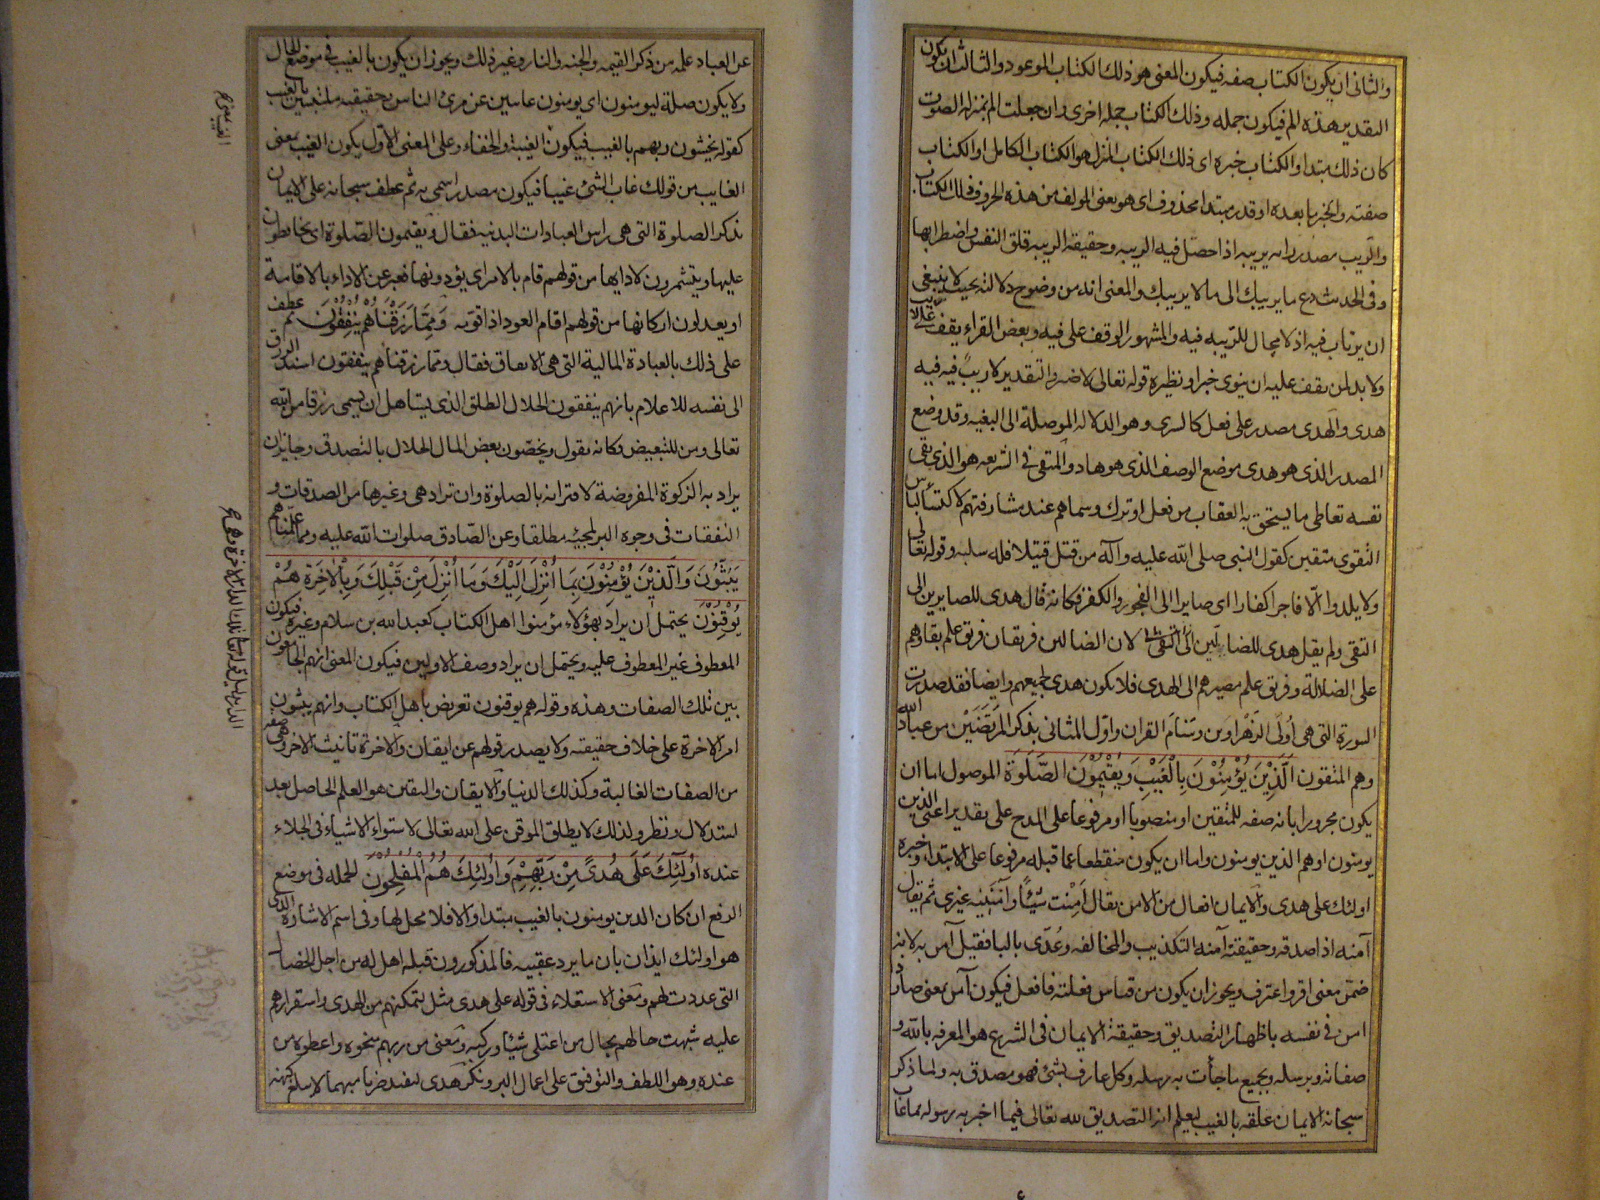 والثانی ان یکون الکتاب صفه فیکون المعنی هو ذلك الکتاب الموعود والثالث ان یکون
التقدیر هذه الم فیکون جمله وذلك الکتاب جمله اخری وان جعلت الم بمنزله الصوت
کان ذلك مبتدا والکتاب خبره ای ذلك الکتاب المنزل هو الکتاب الکامل او الکتاب
صفته والخبر ما بعده او قدر مبتدا محذوف ای هو یعنی المولف من هذه الحروف ذلك الکتاب
والریب مصدر رابه یریبه اذا حصل فیه الریبه وحقیقه الریبه قلق النفس واضطرابها
وفی الحدیث دع ما یریبك الی ما لا یریبك والمعنی انه من وضوح دلالته بحیث لا ینبغی
ان یرتاب فیه اذ لا مجال للریبه فیه والمشهور الوقف علی فیه وبعض القراء یقف علی لا ریب
ولا بد لمن یقف علیه ان ینوی خبرا ونظیره قوله تعالی لا ضیر والتقدیر لا ریب فیه فیه
هدی والهدی مصدر علی فعل کالسری وهو الدلاله الموصلة الی البغیه وقد وضع
المصدر الذی هو هدی موضع الوصف الذی هو هاد والمتقی فی الشریعه هو الذی یقی
نفسه تعاطی ما یستحق به العقاب من فعل او ترك وسماهم عند مشارفتهم لاکتساء لباس
التقوی متقین کقول النبی صلی الله علیه وآله من قتل قتیلا فله سلبه وقوله تعالی
ولا یلدوا الّا فاجرا کفارا ای صایرا الی الفجور والکفر فکانه قال هدی للصایرین الی
التقی ولم یقل هدی للضالین لان الضالین فریقان فریق علم بقاؤهم
علی الضلالة وفریق علم مصیرهم الی الهدی فلا یکون هدی لجمیعهم وایضا فقد صدرت
السورة التی هی اُولی الزَهراوین وسَنام القران واوّل المثانی بذکر المرتضَین من عباد الله
وهم المتقون الَّذِیْنَ یُؤْمِنُوْنَ بِالْغَیْبِ وَیُقِیْمُوْنَ الصَّلٰوةَ الموصول اما ان
یکون مجرورا بانه صفه للمتقین او منصوبا او مرفوعا علی المدح علی تقدیر اعنی الذین
یومنون او هم الذین یومنون واما ان یکون منقطعا عما قبله مرفوعا علی الابتداء وخبره
اولئك علی هدی والایمان افعال من الامن یقال اَمِنْت شیْئًا وآمَنَنِیه غیری ثم یقال
آمنه اذا صدقه وحقیقتة آمنه التکذیب والمخالفه وعُدّی بالبا فقیل آمن به لانه
ضمّن معنی اقر واعترف ویجوز ان یکون من قیاس فعلته فافعل فیکون آمن بمعنی صار ذا
امن فی نفسه باظهار التصدیق وحقیقة الایمان فی الشریع هو المعرفه بالله و
صفاته وبرسله وبجمیع ما جأت به رسله وکل عارف بشئ فهو مصدق به ولما ذکر
سبحانه الایمان علقه بالغیب لیعلم انه التصدیق لله تعالی فیما اخبر به رسوله مما غاب
عن العباد علمه من ذکر القیمه والجنه والنار وغیر ذلك ویجوز ان یکون بالغیب فی موضع الحال
ولا یکون صلة لیومنون ای یومنون غاىبین عن مرئ الناس وحقیقته ملتبسین بالغیب
کقوله یخشون ربهم بالغیب فیکون الغیبة والخفاء وعلی المعنی الاوّل یکون الغیب بمعنی
الغایب من قولك غاب الشئ غیبا فیکون مصدرا سمی به ثم عطف سبحانه علی الایمان
بذکر الصلوة التی هی راس العبادات البدنیه فقال ویقیمون الصّلوة ای یحافظون
علیها ویتشمرون لادایها من قولهم قام بالامر ای یؤدونها فعبر عن الاداء بالاقامة
او یعدلون ارکانها من قولهم اقام العود اذا قوّمه وَمِمَّا رَزَقْنَاهُمْ یُنْفِقُوْنَ ثم عطف
علی ذلك بالعبادة المالیة التی هی الانفاق فقال ومما رزقناهم ینفقون اسند الرزق
الی نفسه للاعلام بانهم ینفقون الحلال الطلق الذی یستاهل ان یسمی رزقا من الله
تعالی ومن للتبعیض فکانه یقول ویخصّون بعض المال الحلال بالتصدق وجایز ان
یراد به الزکوة المفروضة لاقترانه بالصلوة وان تراد هی وغیرها من الصدقات و
النفقات فی وجوه البر لمجیئه مطلقا وعن الصّادق صلوات الله علیه ومما علّمناهم
یَبُثُّونَ وَالَّذِیْنَ یُؤْمِنُوْنَ بِمَا اُنْزِلَ اِلَیْكَ وَمَا اُنْزِلَ مِنْ قَبْلِكَ وَبِالْاٰخِرَةِ هُمْ
یُوْقِنُوْنَ یحتمل ان یراد بهؤلاء مؤمنوا اهل الکتاب کعبد الله بن سلام وغیره فیکون
المعطوف غیر المعطوف علیه ویحتمل ان یراد وصف الاولین فیکون المعنی انهم الجامعون
بین تلك الصفات وهذه وقوله هم یوقنون تعریض باهل الکتاب وانهم یثبتون
امر الاخرة علی خلاف حقیقته ولا یصدر قولهم عن ایقان والاخرة تانیث الاخر وهی صفه
من الصفات الغالبة وکذلك الدنیا والایقان والیقین هو العلم الحاصل بعد
استدلال ونظر ولذلك لا یطلق الموقن علی الله تعالی لاستواء الاشیاء فی الجلاء
عنده اُولٰئِكَ عَلٰی هُدًی مِنْ رَبِّهِمْ وَاُولٰئِكَ هُمُ الْمُفْلِحُوْنَ الجمله فی موضع
الرفع ان کان الذین یومنون بالغیب مبتدا والا فلا محل لها وفی اسم الاشارة الذی
هو اولئك ایذان بان ما یرد عقیبه فالمذکورون قبله اهل له من اجل الخصال
التی عددت لهم ومعنی الاستعلاء فی قوله علی هدی مثل لتمکنهم من الهدی واستقرارهم
علیه شبهت حالهم بحال من اعتلی شیأ ورکبه ومعنی من ربهم منحوه واعطوه من
عنده وهو اللطف والتوفیق علی اعمال البر ونکر هدی لیفید ضربا مبهما لا یبلغ کنهه